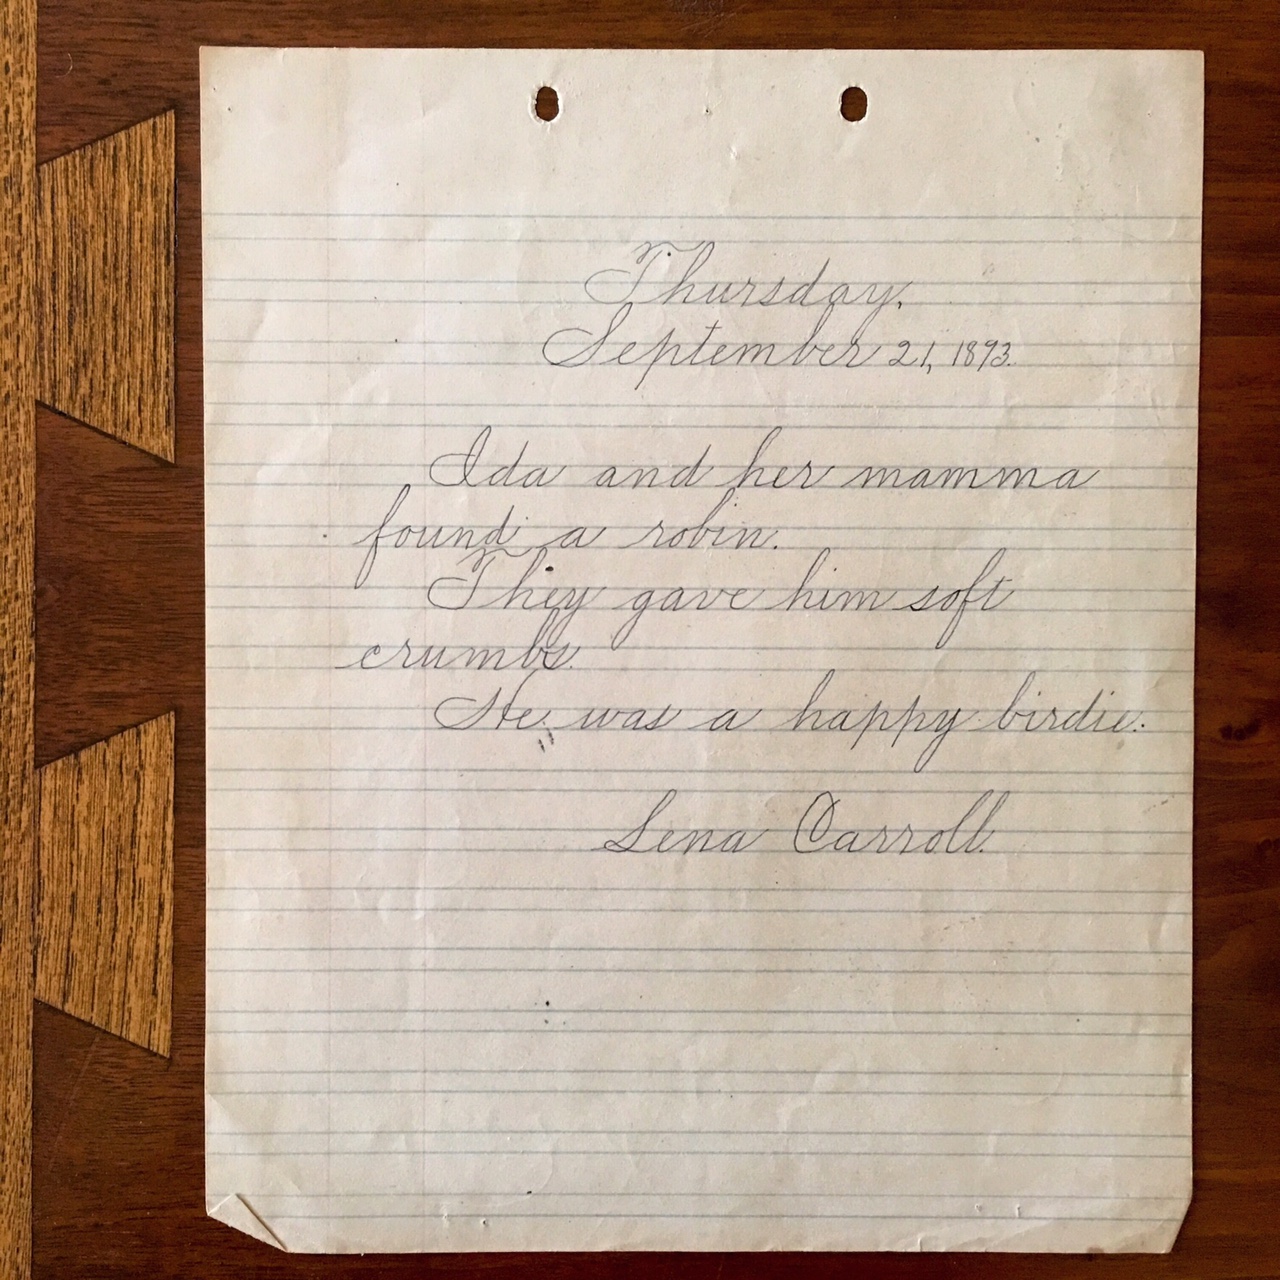 Thursday,
September 21, 1893.
Ida and her mamma
found a robin.
They gave him soft
crumbs.
He was a happy birdie.
Lena Carroll.